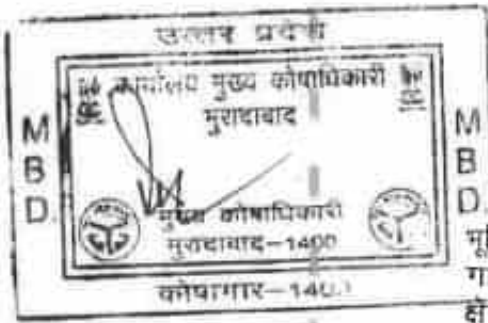 उत्तर प्रदेश
कार्यालय मुख्य कोषाधिकारी
मुरादाबाद
M
B
D.
M
B
D.
मुख्य कोषाधिकारी
मुरादाबाद-1400
कोषागार-140